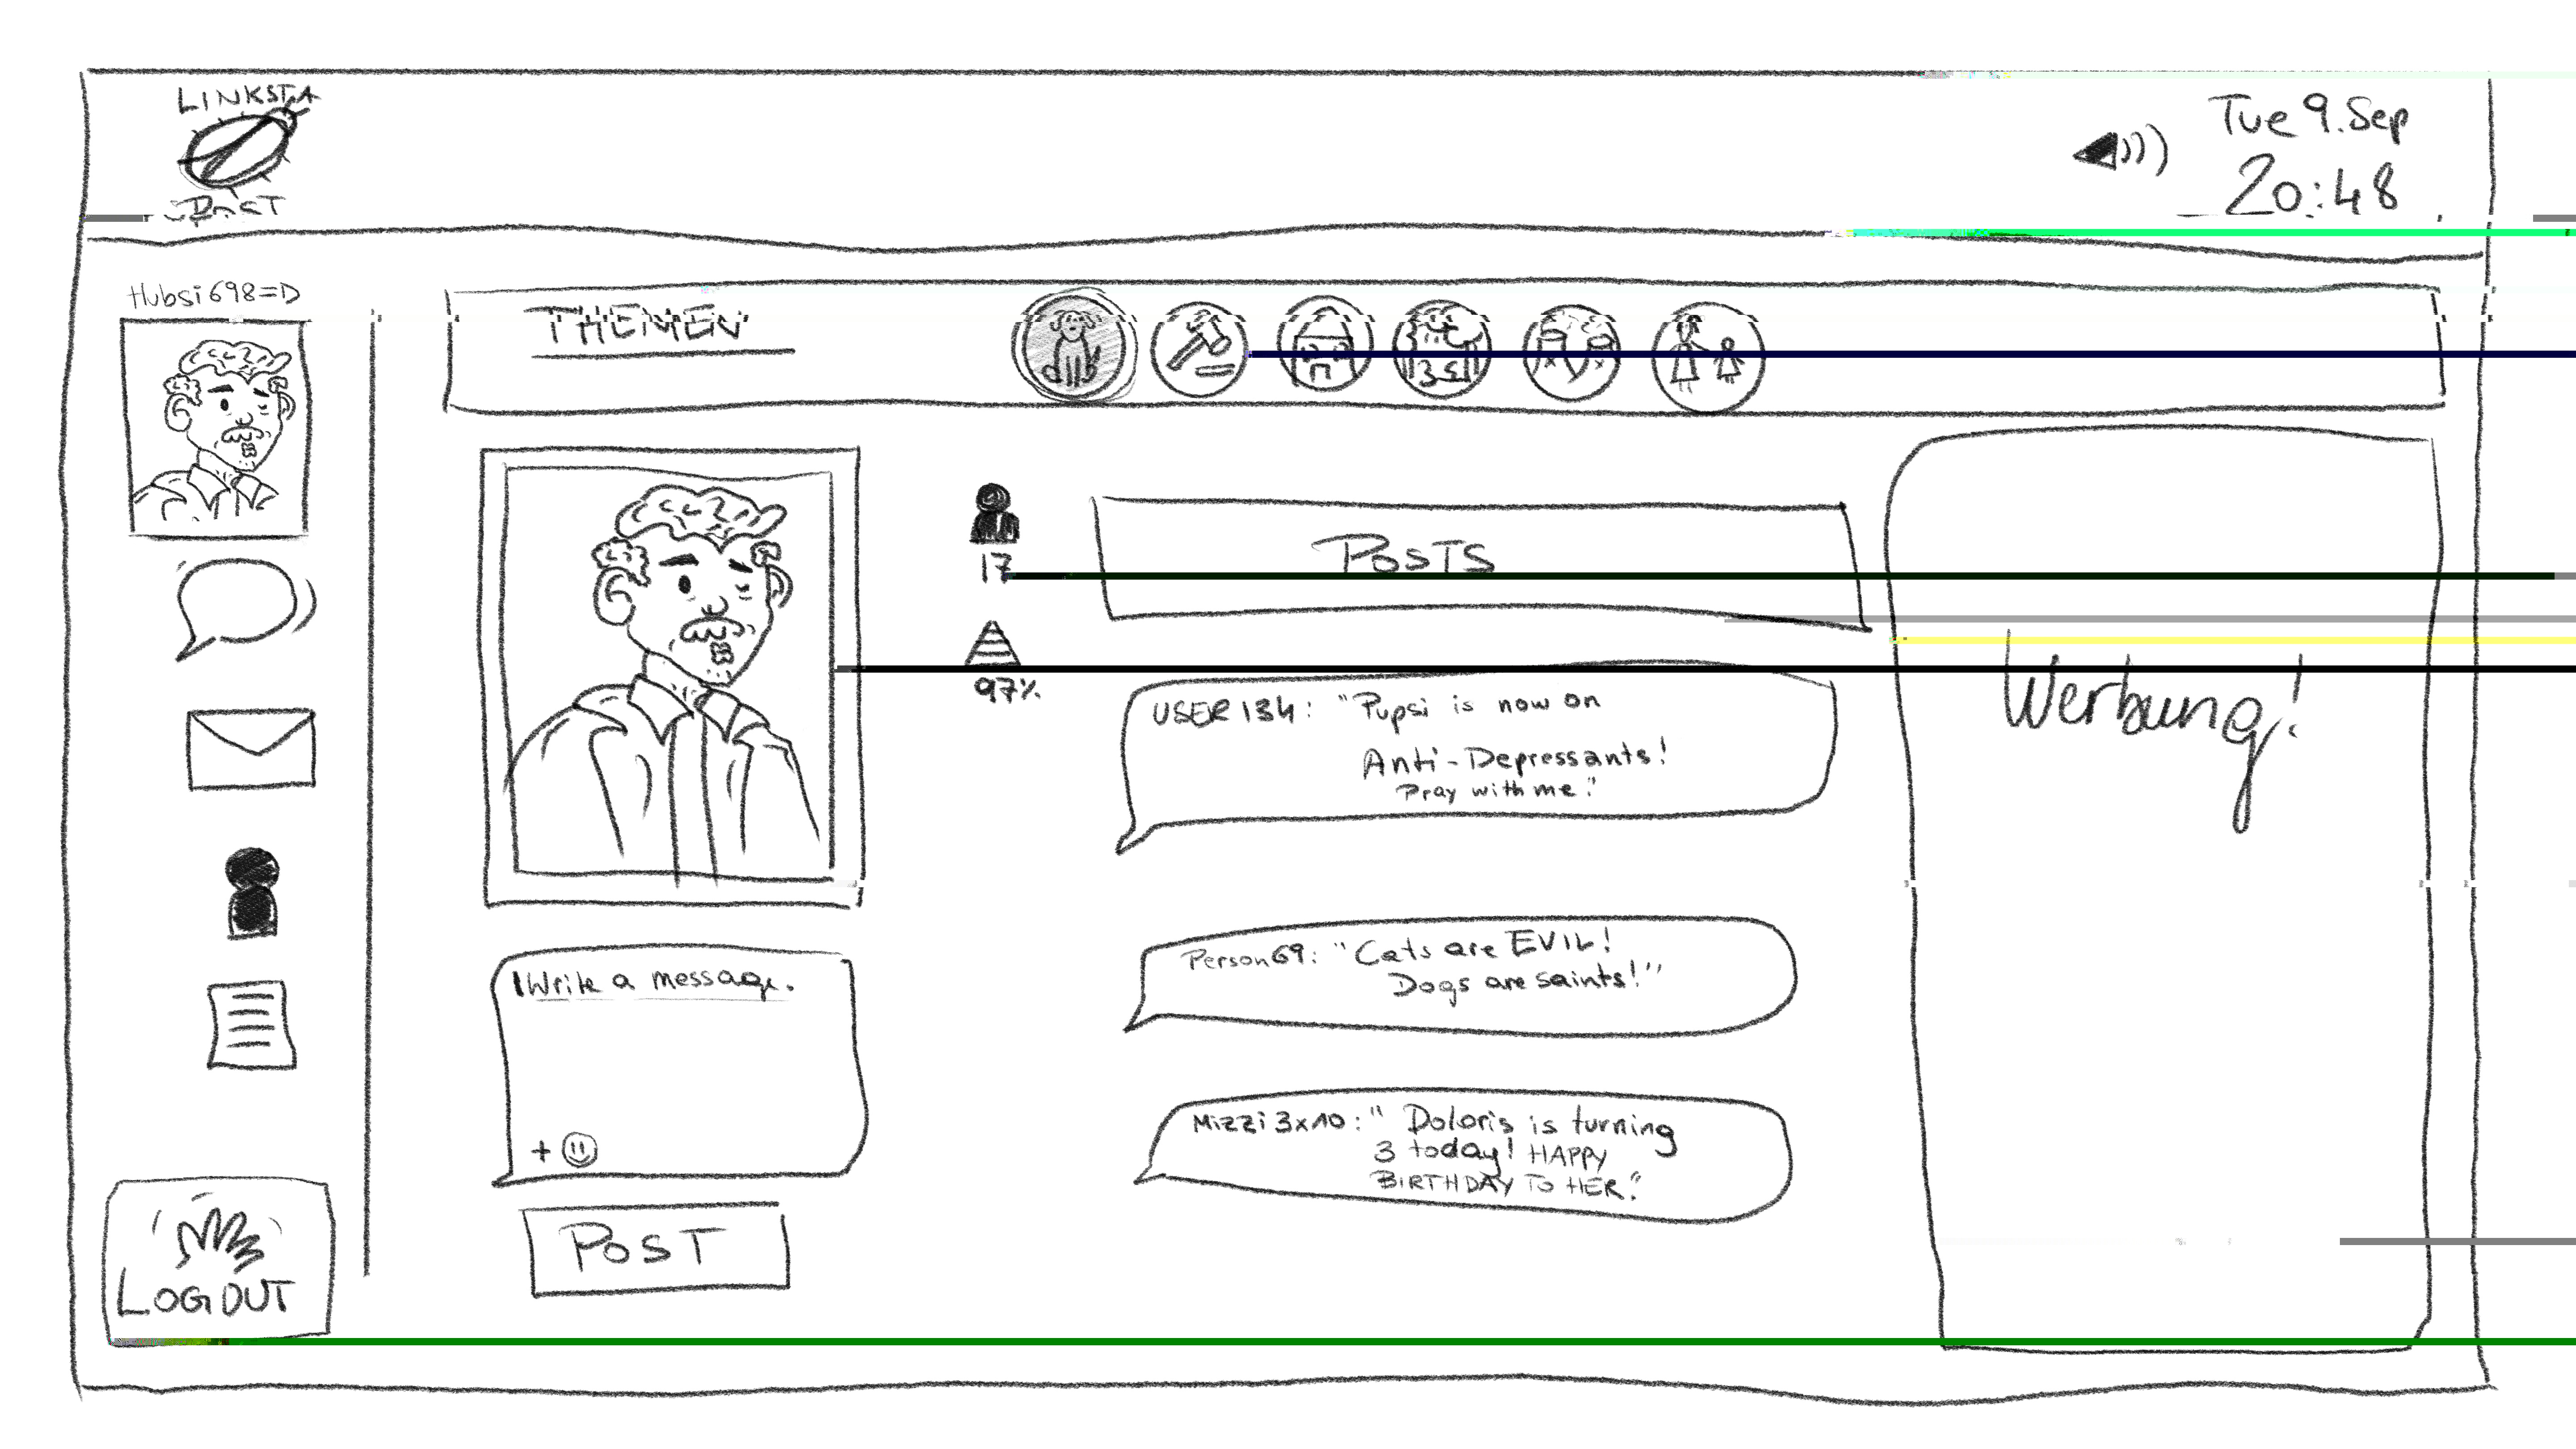 LINKSTA
POST
Tue 9.Sep
20:48
Hubsi698=D
THEMEN
17
97%
POSTS
USER134: "Pupsi is now on
Anti-Depressants!
Pray with me."
Werbung!
Person69: "Cats are EVIL!
Dogs are saints!"
Write a message.
+
Mizzi3x10: "Doloris is turning
3 today! HAPPY
BIRTHDAY TO HER."
POST
LOGOUT